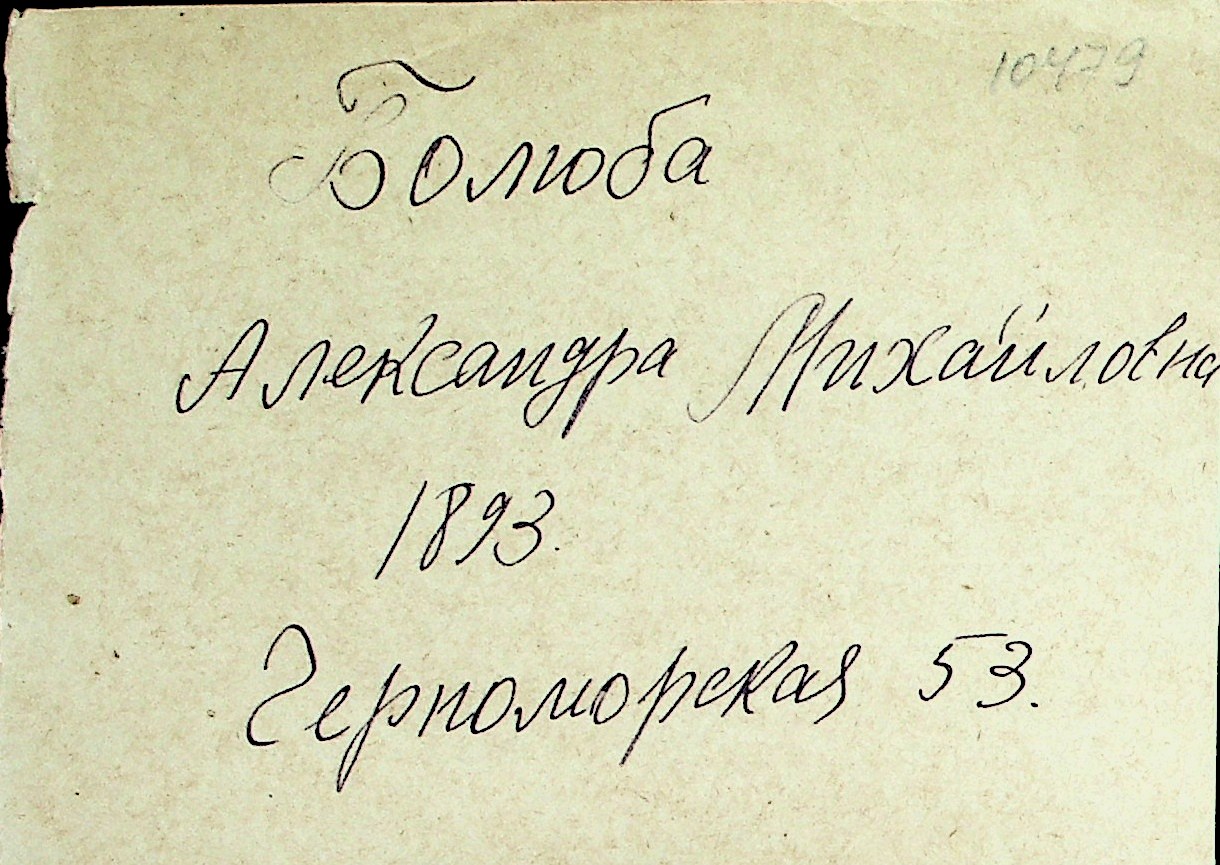 10479
Болюба
Александра Михайловна
1893.
Черноморская 53.